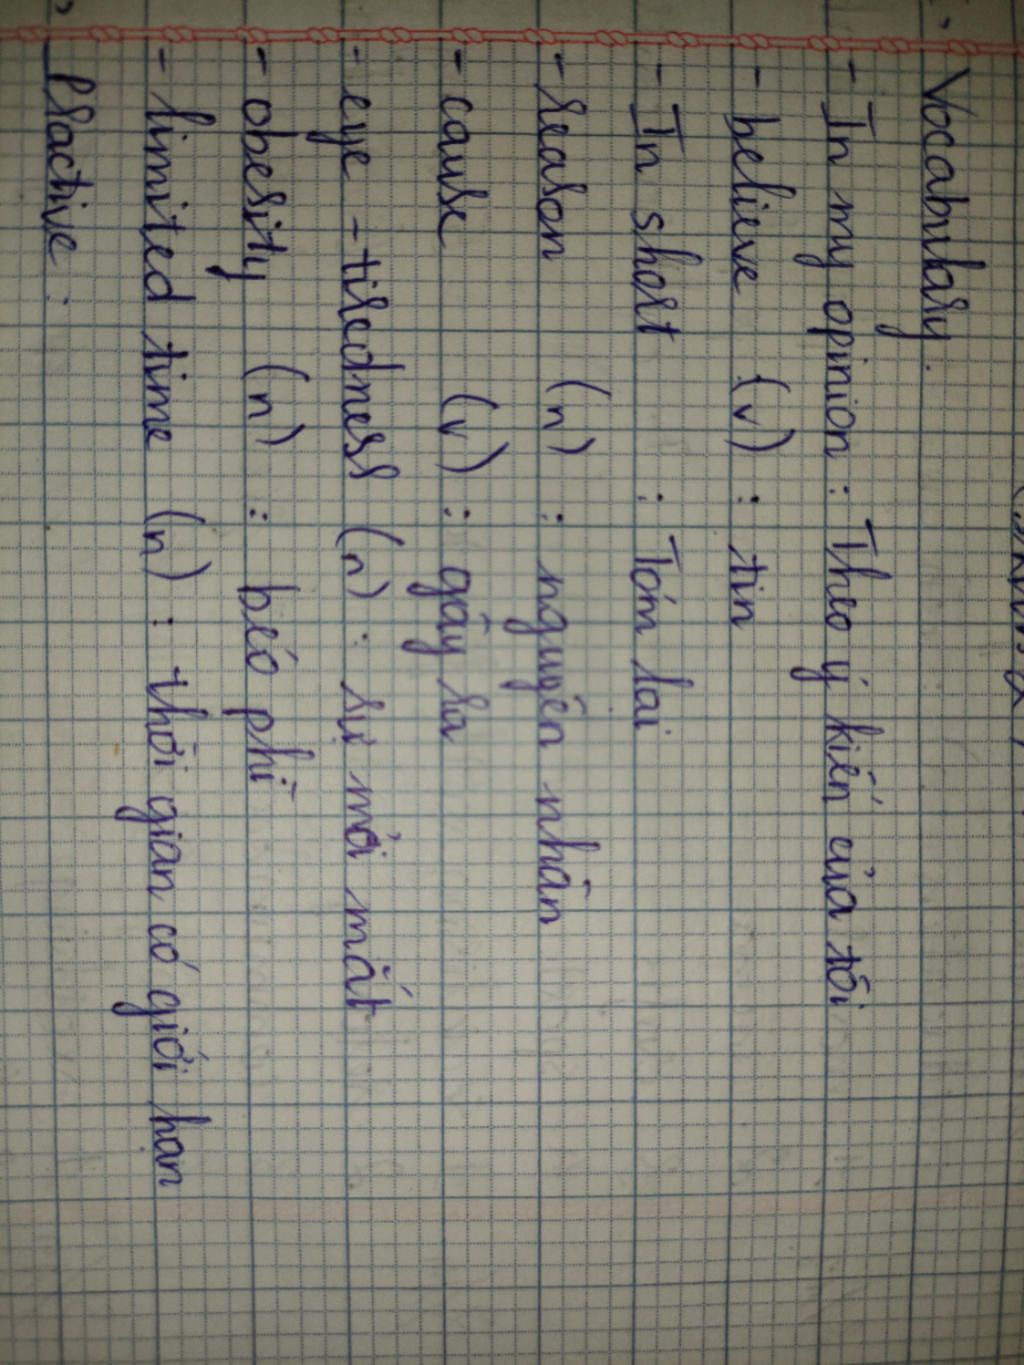 Vocabulary.
- In my opinion : Theo ý kiến của tôi
- believe (v) : tin
- In short : Tóm lại
- reason (n) : nguyên nhân
- cause (v) : gây ra
- eye - tiredness (n) : sự mỏi mắt
- obesity (n) : béo phì
- limited time (n) : thời gian có giới hạn
Practive :